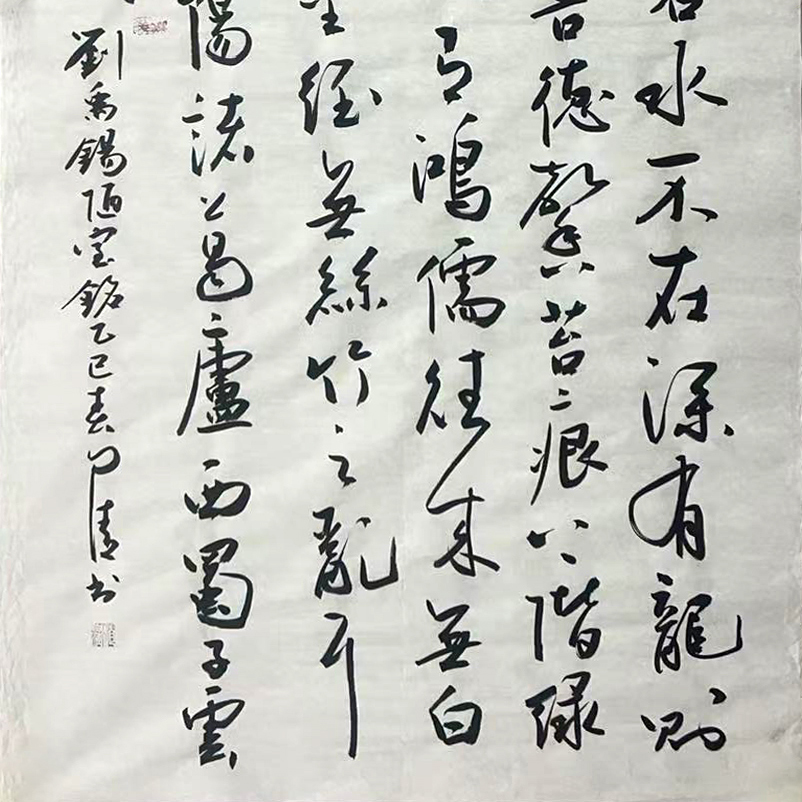 水不在深有龍則
吾德馨苔痕上階緑
有鴻儒往来無白
經無絲竹之亂耳
陽諸葛廬西蜀子雲
劉禹錫陋室銘乙巳春清书